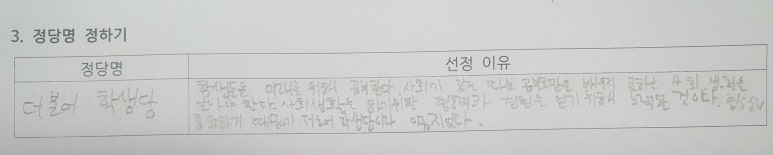 3. 정당명 정하기
정당명 선정 이유
더불어 학생당
학생들은 미래를 위해 공부한다. 사회에 갔을 때 공부만으로 배우지 못하는 사회 생활을
알아야 한다. 사회생활을 하기위한 협동력과 경험을 쌓기 위해 노력할 것이다. 협동심이
중요하기 때문에 더불어 학생당이라 이름지었다.